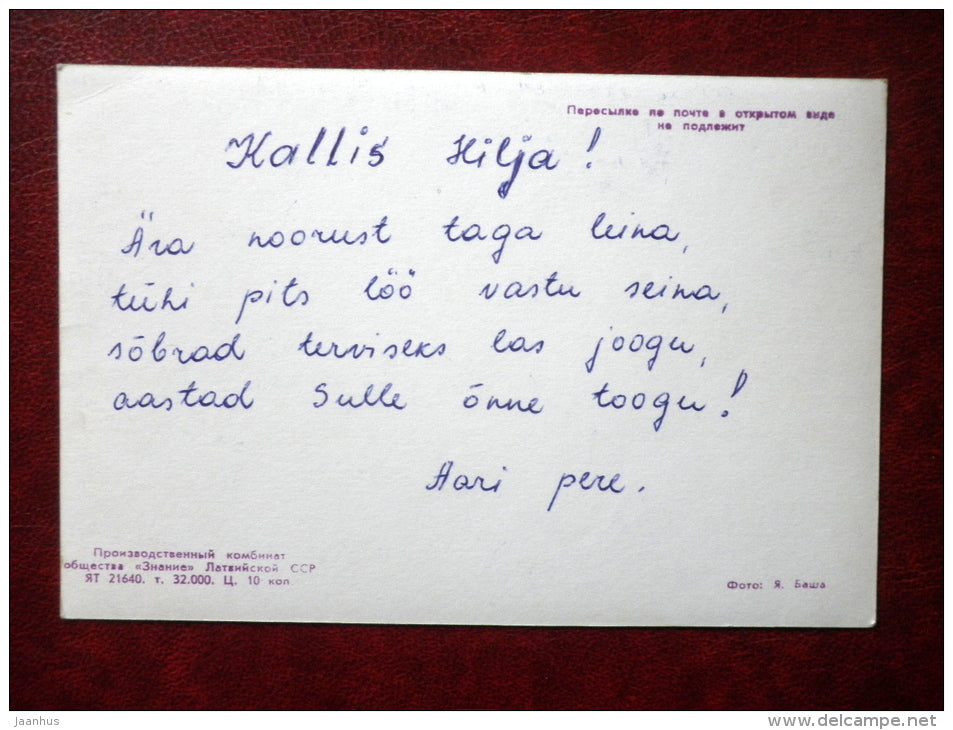 Пересылке по почте в открытом виде
не подлежит
Kallis Hilja!
Ära noorust taga leina,
tühi pits löö vastu seina,
sõbrad terviseks las joogu,
aastad Sulle õnne toogu!
Aari pere.
Производственный комбинат
общества «Знание» Латвийской ССР
ЯТ 21640. т. 32.000. Ц. 10 коп.
Фото: Я. Баша
jaanhus
www.delcampe.net